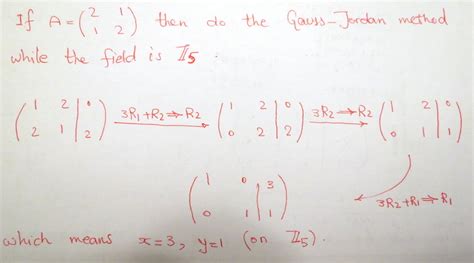 If A = ( 2 1 ; 1 2 ) then do the Gauss-Jordan method
while the field is ℤ5 .
( 1 2 | 0 ; 2 1 | 2 ) 3R1+R2⇒R2 ( 1 2 | 0 ; 0 2 | 2 ) 3R2⇒R2 ( 1 2 | 0 ; 0 1 | 1 )
3R2+R1⇒R1
( 1 0 | 3 ; 0 1 | 1 )
which means x=3, y=1 (on ℤ5).